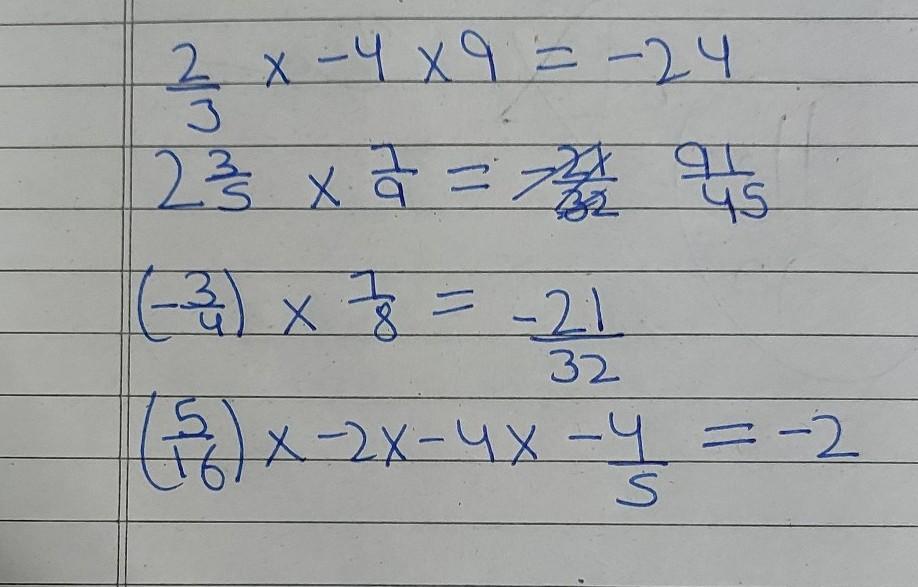 2/3 × -4 × 9 = -24
2 3/5 × 7/9 = -21/32 91/45
(-3/4) × 7/8 = -21/32
(5/16) × -2 × -4 × -4/5 = -2